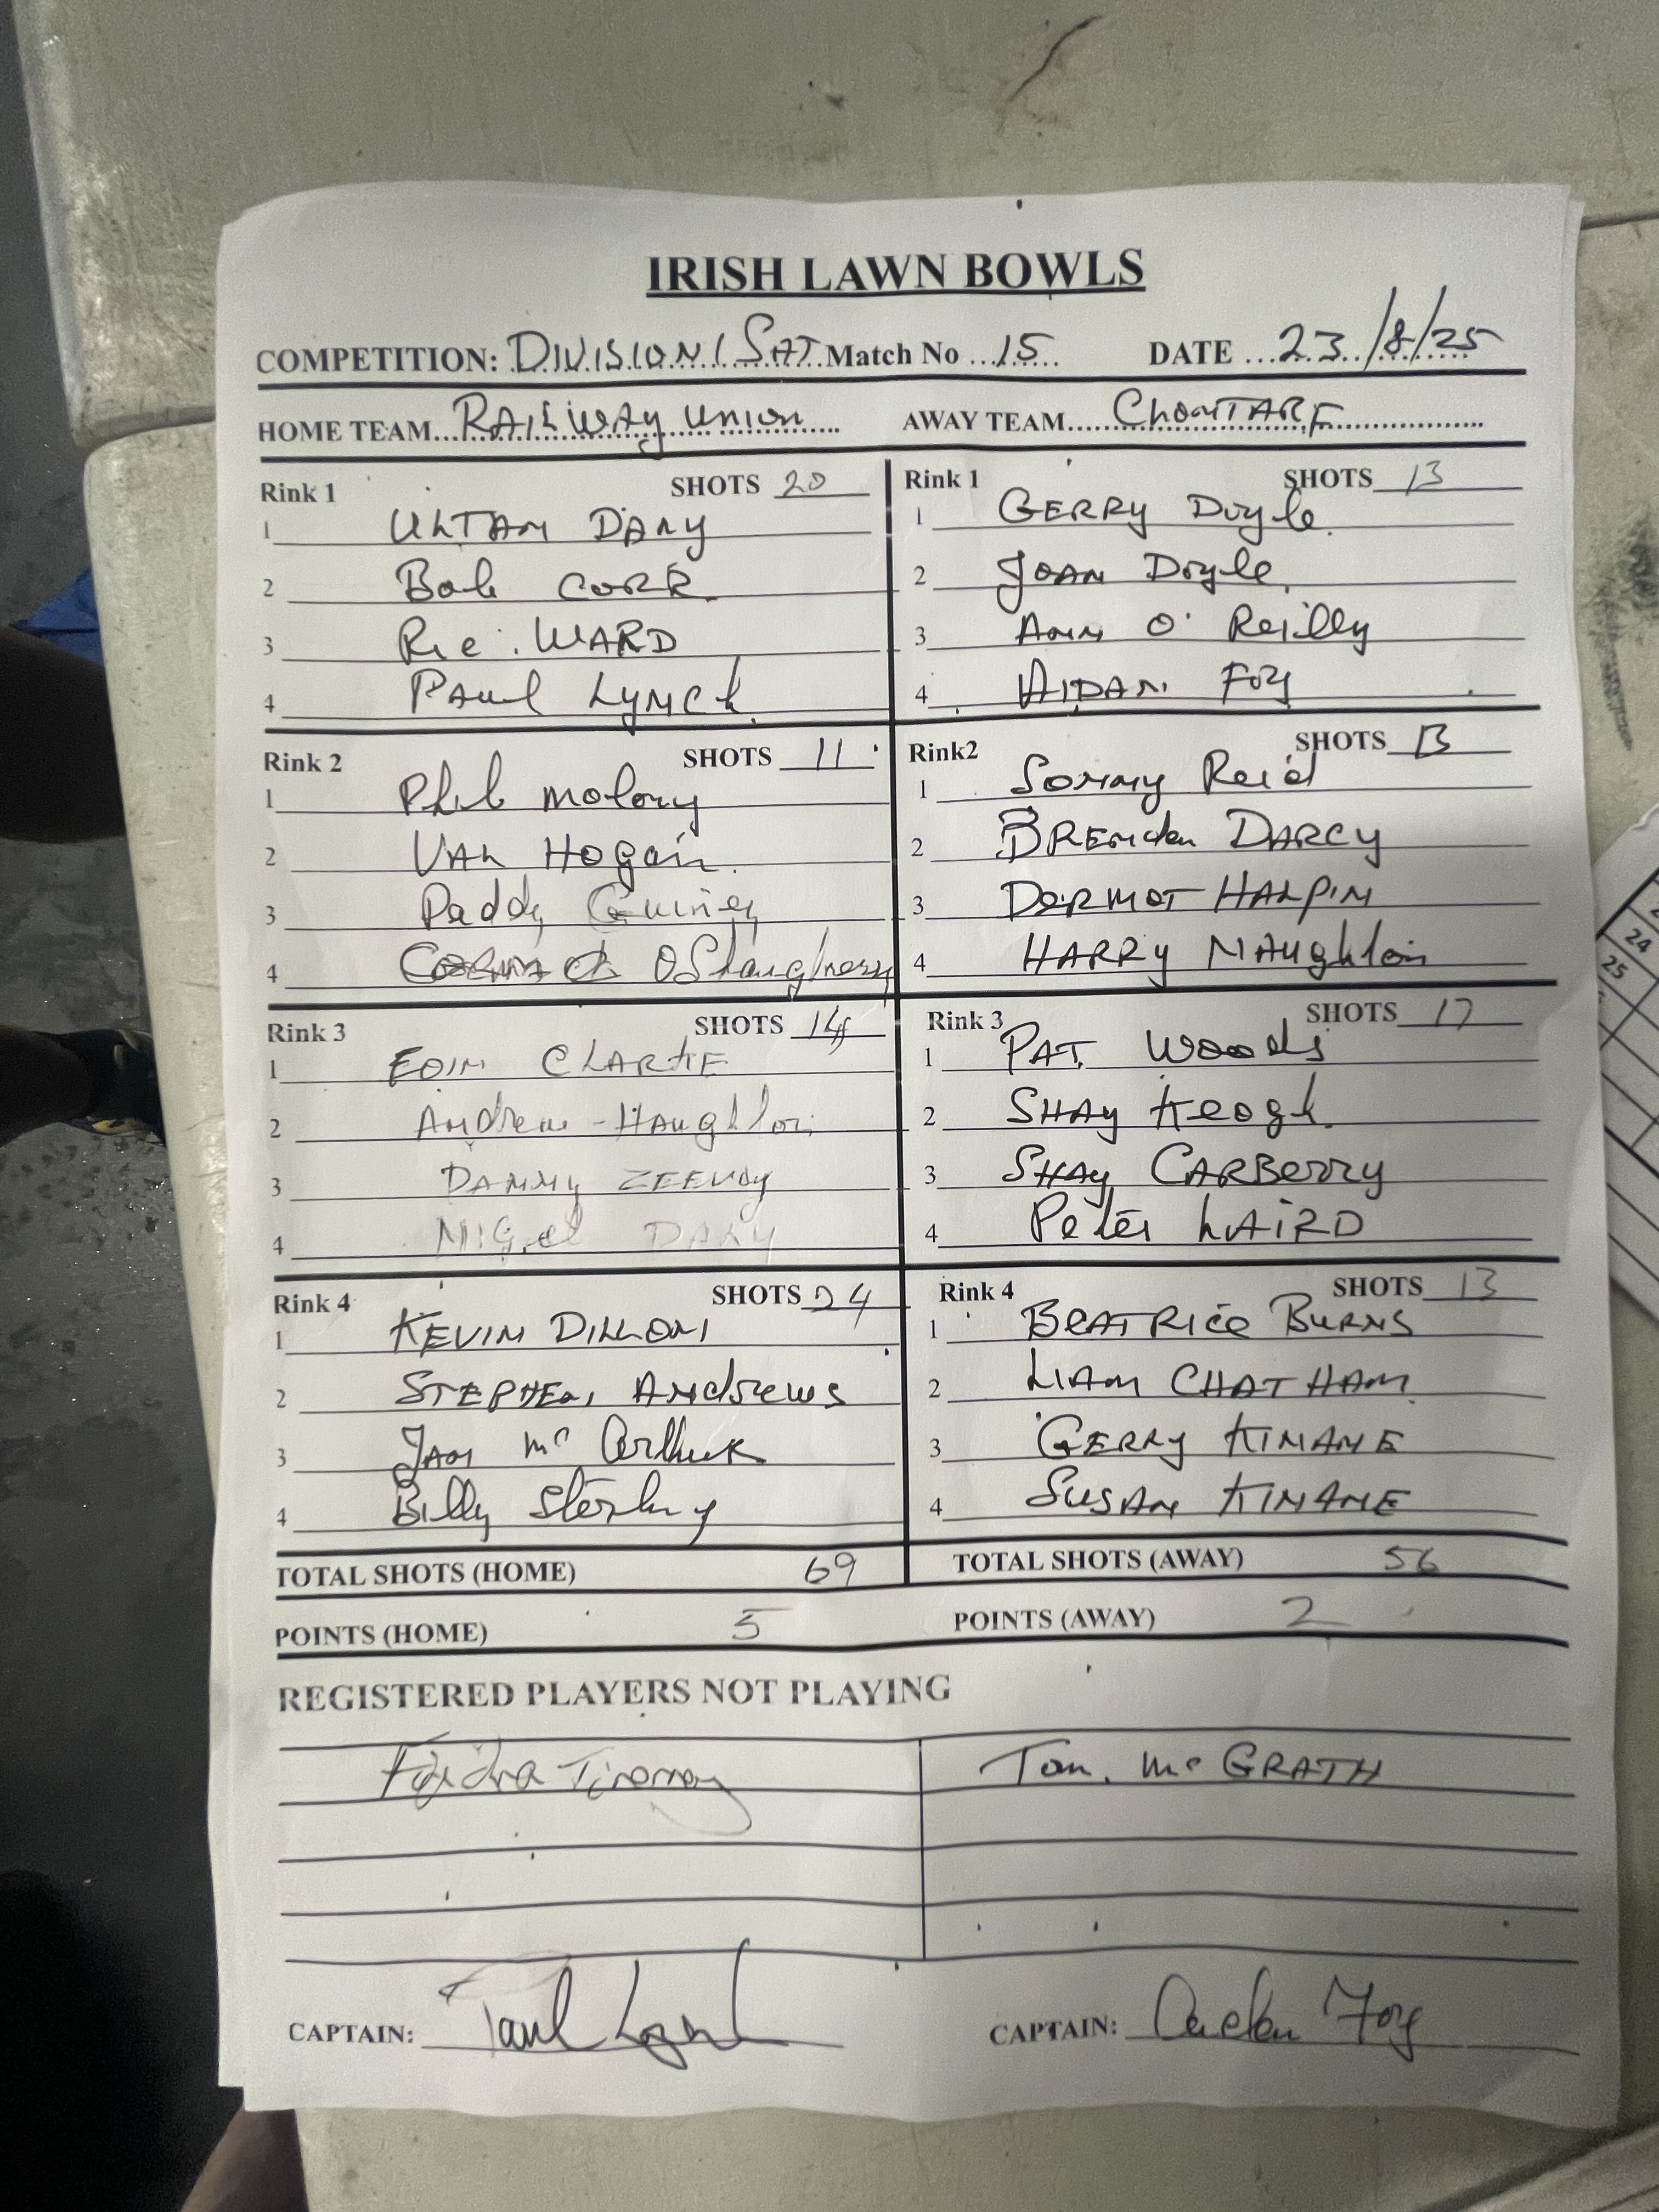 IRISH LAWN BOWLS
COMPETITION: DIVISION 1 SAT Match No 15 DATE 23/8/25
HOME TEAM RAILWAY UNION AWAY TEAM CLONTARF
Rink 1 SHOTS 20
1 ULTAN DALY
2 Bob CORR
3 Ric. WARD
4 PAUL LYNCH
Rink 1 SHOTS 13
1 GERRY Doyle
2 JOAN Doyle
3 ANN O' Reilly
4 AIDAN FOY
Rink 2 SHOTS 11
1 Phil Molony
2 VAL HOGAN
3 Paddy Guiney
4 OShaughnessy
Rink2 SHOTS 13
1 Sonny Reid
2 BRENdan DARCY
3 DERMOT HALPIN
4 HARRY NAUGHton
Rink 3 SHOTS 14
1 EOIN CLARKE
2 Andrew - HAUGHton
3 DANNY ZEEVDY
4 NIGel DALY
Rink 3 SHOTS 17
1 PAT. Woods
2 SHAY Keogh
3 SHAY CARBERRY
4 Peter LAIRD
Rink 4 SHOTS 24
1 KEVIN DILLON
2 STEPHEN ANdrews
3 IAN Mc Arthur
4 Billy Sterling
Rink 4 SHOTS 13
1 BEATRICE BURNS
2 LIAM CHATHAM
3 GERRY KINANE
4 SUSAN KINANE
TOTAL SHOTS (HOME) 69 TOTAL SHOTS (AWAY) 56
POINTS (HOME) 5 POINTS (AWAY) 2
REGISTERED PLAYERS NOT PLAYING
Tom. Mc GRATH
CAPTAIN: Paul Lynch CAPTAIN: Aidan Foy
24
25